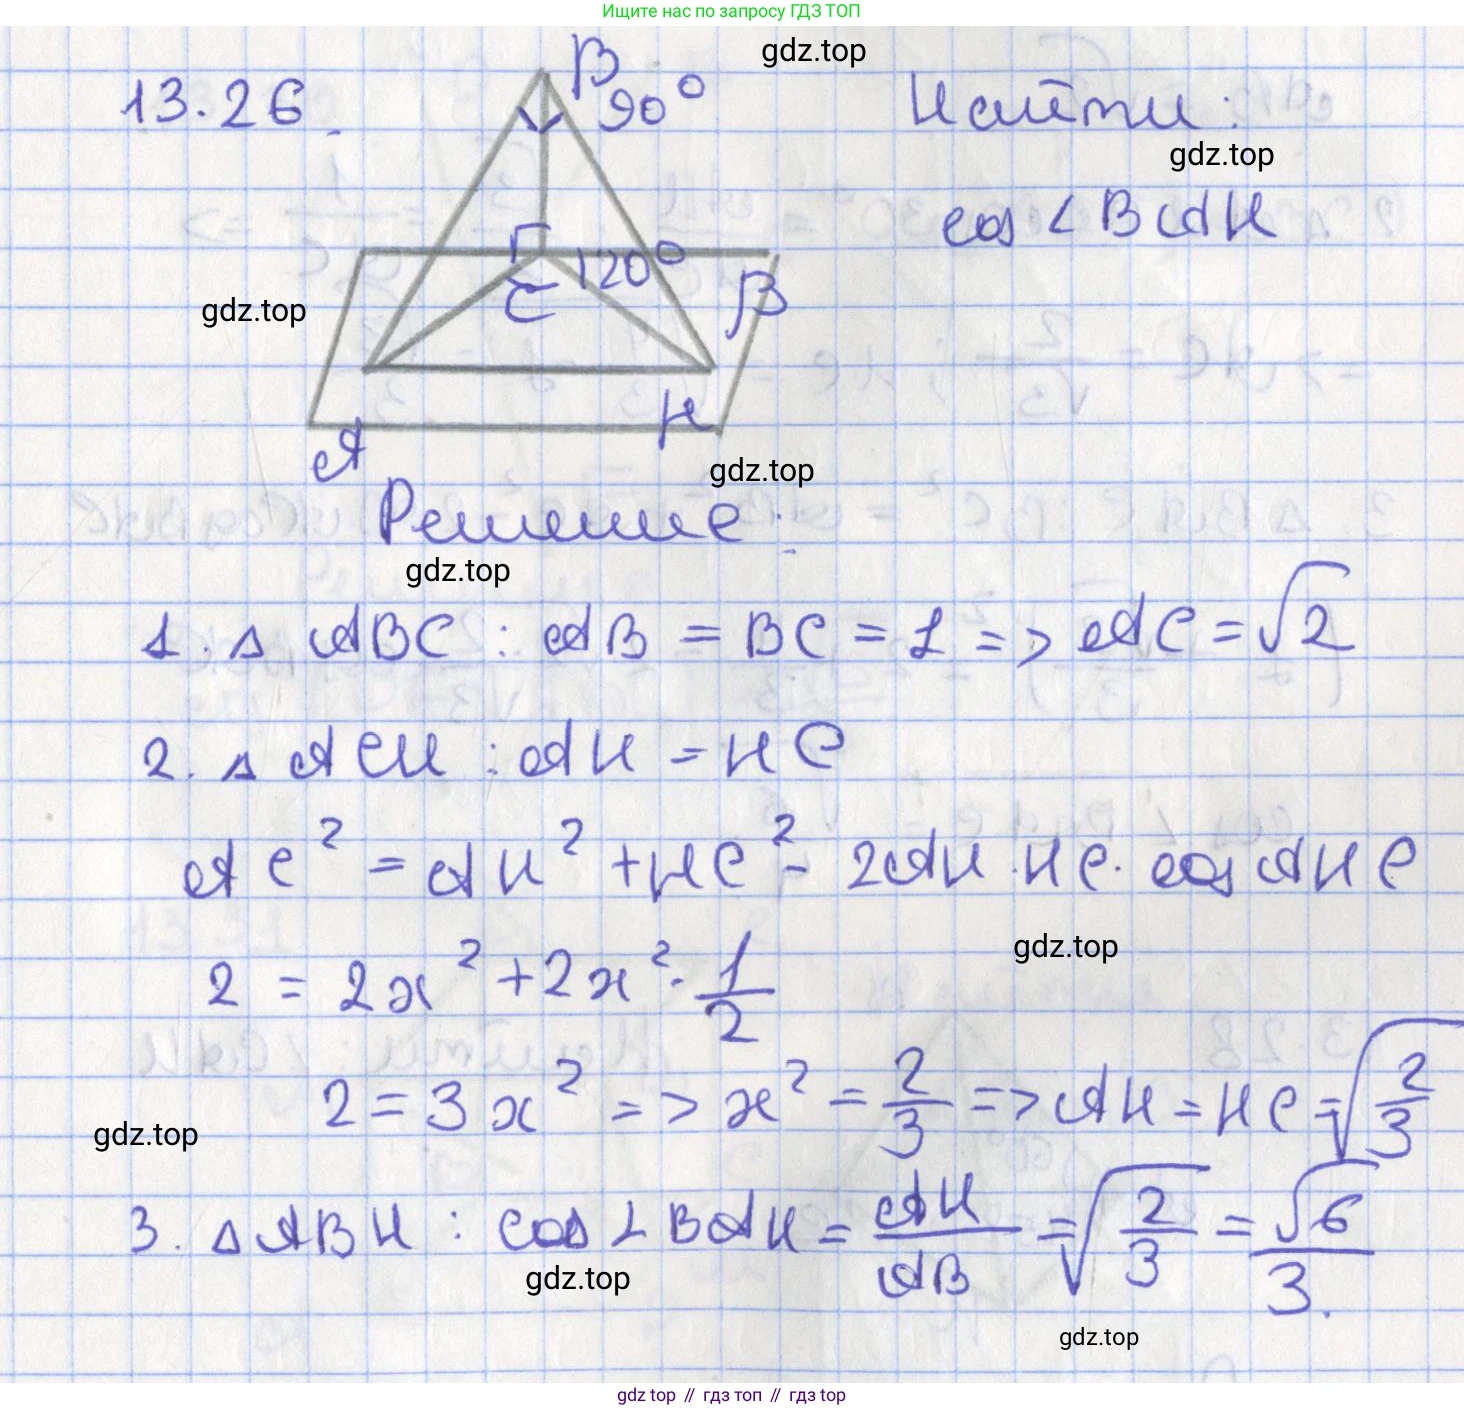 Ищите нас по запросу ГДЗ ТОП
gdz.top
13.26.
B
90°
Найти:
gdz.top
cos ∠BAH
C 120°
β
gdz.top
A
H
gdz.top
Решение:
gdz.top
1. △ ABC : AB = BC = 1 => AC = √2
2. △ ACH : AH = HC
AC² = AH² + HC² - 2AH · HC · cos AHC
gdz.top
2 = 2x² + 2x² · 1/2
2 = 3x² => x² = 2/3 => AH = HC = √(2/3)
gdz.top
3. △ ABH : cos ∠BAH = AH/AB = √(2/3) = √6/3.
gdz.top
gdz.top
gdz.top // гдз топ // гдз top